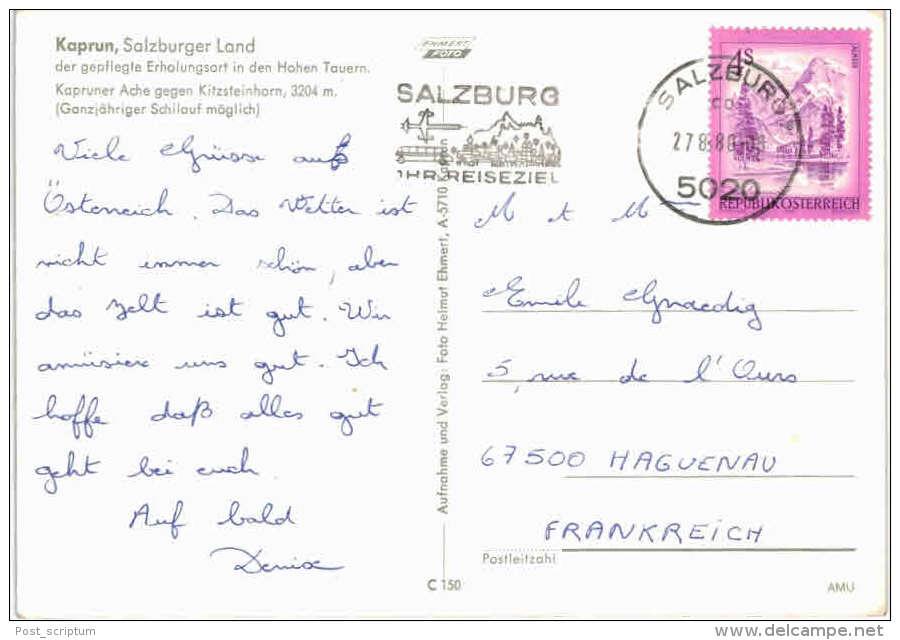 Kaprun, Salzburger Land
der gepflegte Erholungsort in den Hohen Tauern.
Kapruner Ache gegen Kitzsteinhorn, 3204 m.
(Ganzjähriger Schilauf möglich)
Viele Grüsse aus
Österreich. Das Wetter ist
nicht immer schön, aber
das Zelt ist gut. Wir
amüsiere uns gut. Ich
hoffe daß alles gut
geht bei euch
Auf bald
Denise
EHMERT
FOTO
SALZBURG
IHR REISEZIEL
SALZBURG
27.8.80
5020
4S
ALMSEE
REPUBLIK ÖSTERREICH
Aufnahme und Verlag: Foto Helmut Ehmert, A-5710 Kaprun
C 150
M et M
Emile Gnaedig
5, rue de l'Ours
67500 HAGUENAU
FRANKREICH
Postleitzahl
AMU
Post_scriptum
delcampe.net